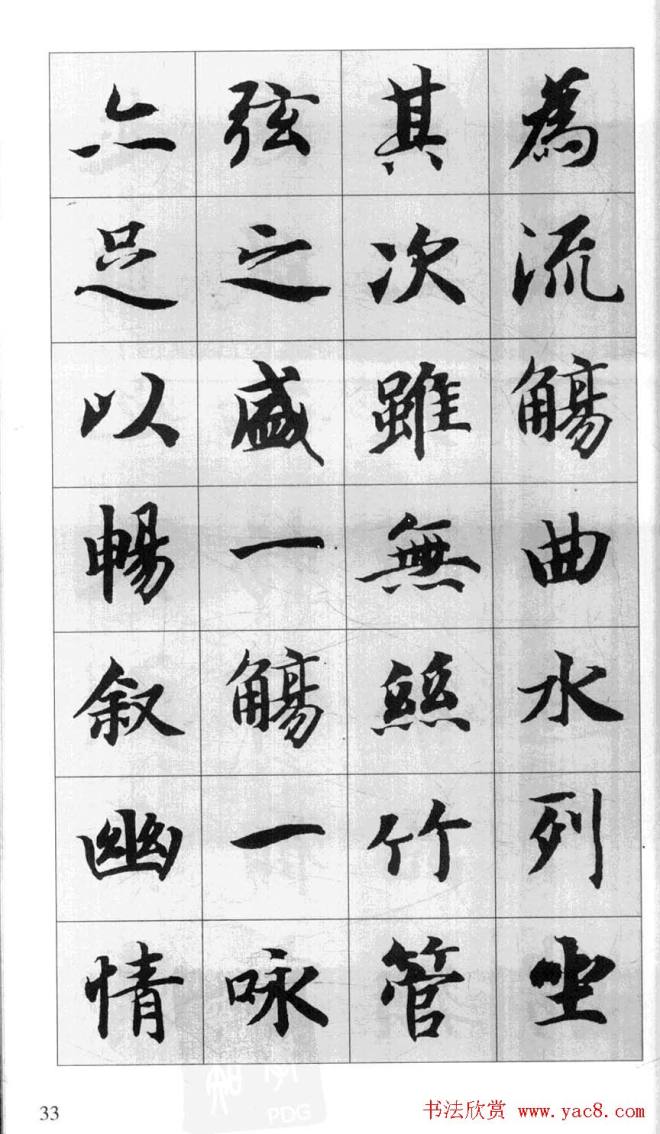 為流觴曲水列坐
其次雖無絲竹管
弦之盛一觴一詠
亦足以暢叙幽情
33
PDG
书法欣赏 www.yac8.com